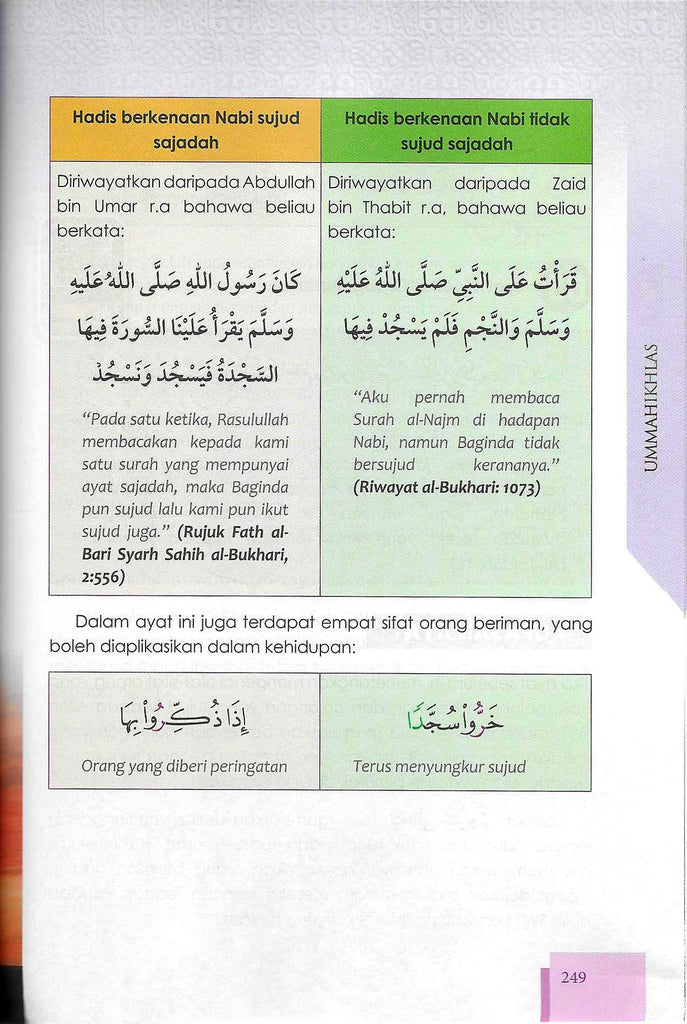 Hadis berkenaan Nabi sujud
sajadah
Diriwayatkan daripada Abdullah
bin Umar r.a bahawa beliau
berkata:
كَانَ رَسُولُ اللهِ صَلَّى اللهُ عَلَيْهِ
وَسَلَّمَ يَقْرَأُ عَلَيْنَا السُّورَةَ فِيهَا
السَّجْدَةُ فَيَسْجُدُ وَنَسْجُدُ
“Pada satu ketika, Rasulullah
membacakan kepada kami
satu surah yang mempunyai
ayat sajadah, maka Baginda
pun sujud lalu kami pun ikut
sujud juga.” (Rujuk Fath al-
Bari Syarh Sahih al-Bukhari,
2:556)
Hadis berkenaan Nabi tidak
sujud sajadah
Diriwayatkan daripada Zaid
bin Thabit r.a, bahawa beliau
berkata:
قَرَأْتُ عَلَى النَّبِيِّ صَلَّى اللهُ عَلَيْهِ
وَسَلَّمَ وَالنَّجْمِ فَلَمْ يَسْجُدْ فِيهَا
“Aku pernah membaca
Surah al-Najm di hadapan
Nabi, namun Baginda tidak
bersujud kerananya.”
(Riwayat al-Bukhari: 1073)
Dalam ayat ini juga terdapat empat sifat orang beriman, yang
boleh diaplikasikan dalam kehidupan:
إِذَا ذُكِّرُوا۟ بِهَا
Orang yang diberi peringatan
خَرُّوا۟ سُجَّدًا
Terus menyungkur sujud
UMMAHIKHLAS
249